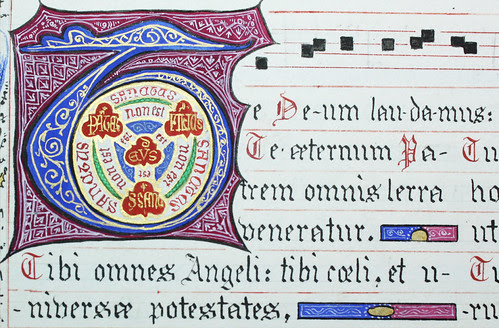 SANCTUS
non est
PATER FILIUS
est est
DEUS
SANCTUS non est non est SANCTUS
est
Te De-um lau-da-mus:
Te æternum Pa- Tu
trem omnis terra ho
veneratur. ut
Tibi omnes Angeli: tibi cœli, et u- T
-niversæ potestates, -ru